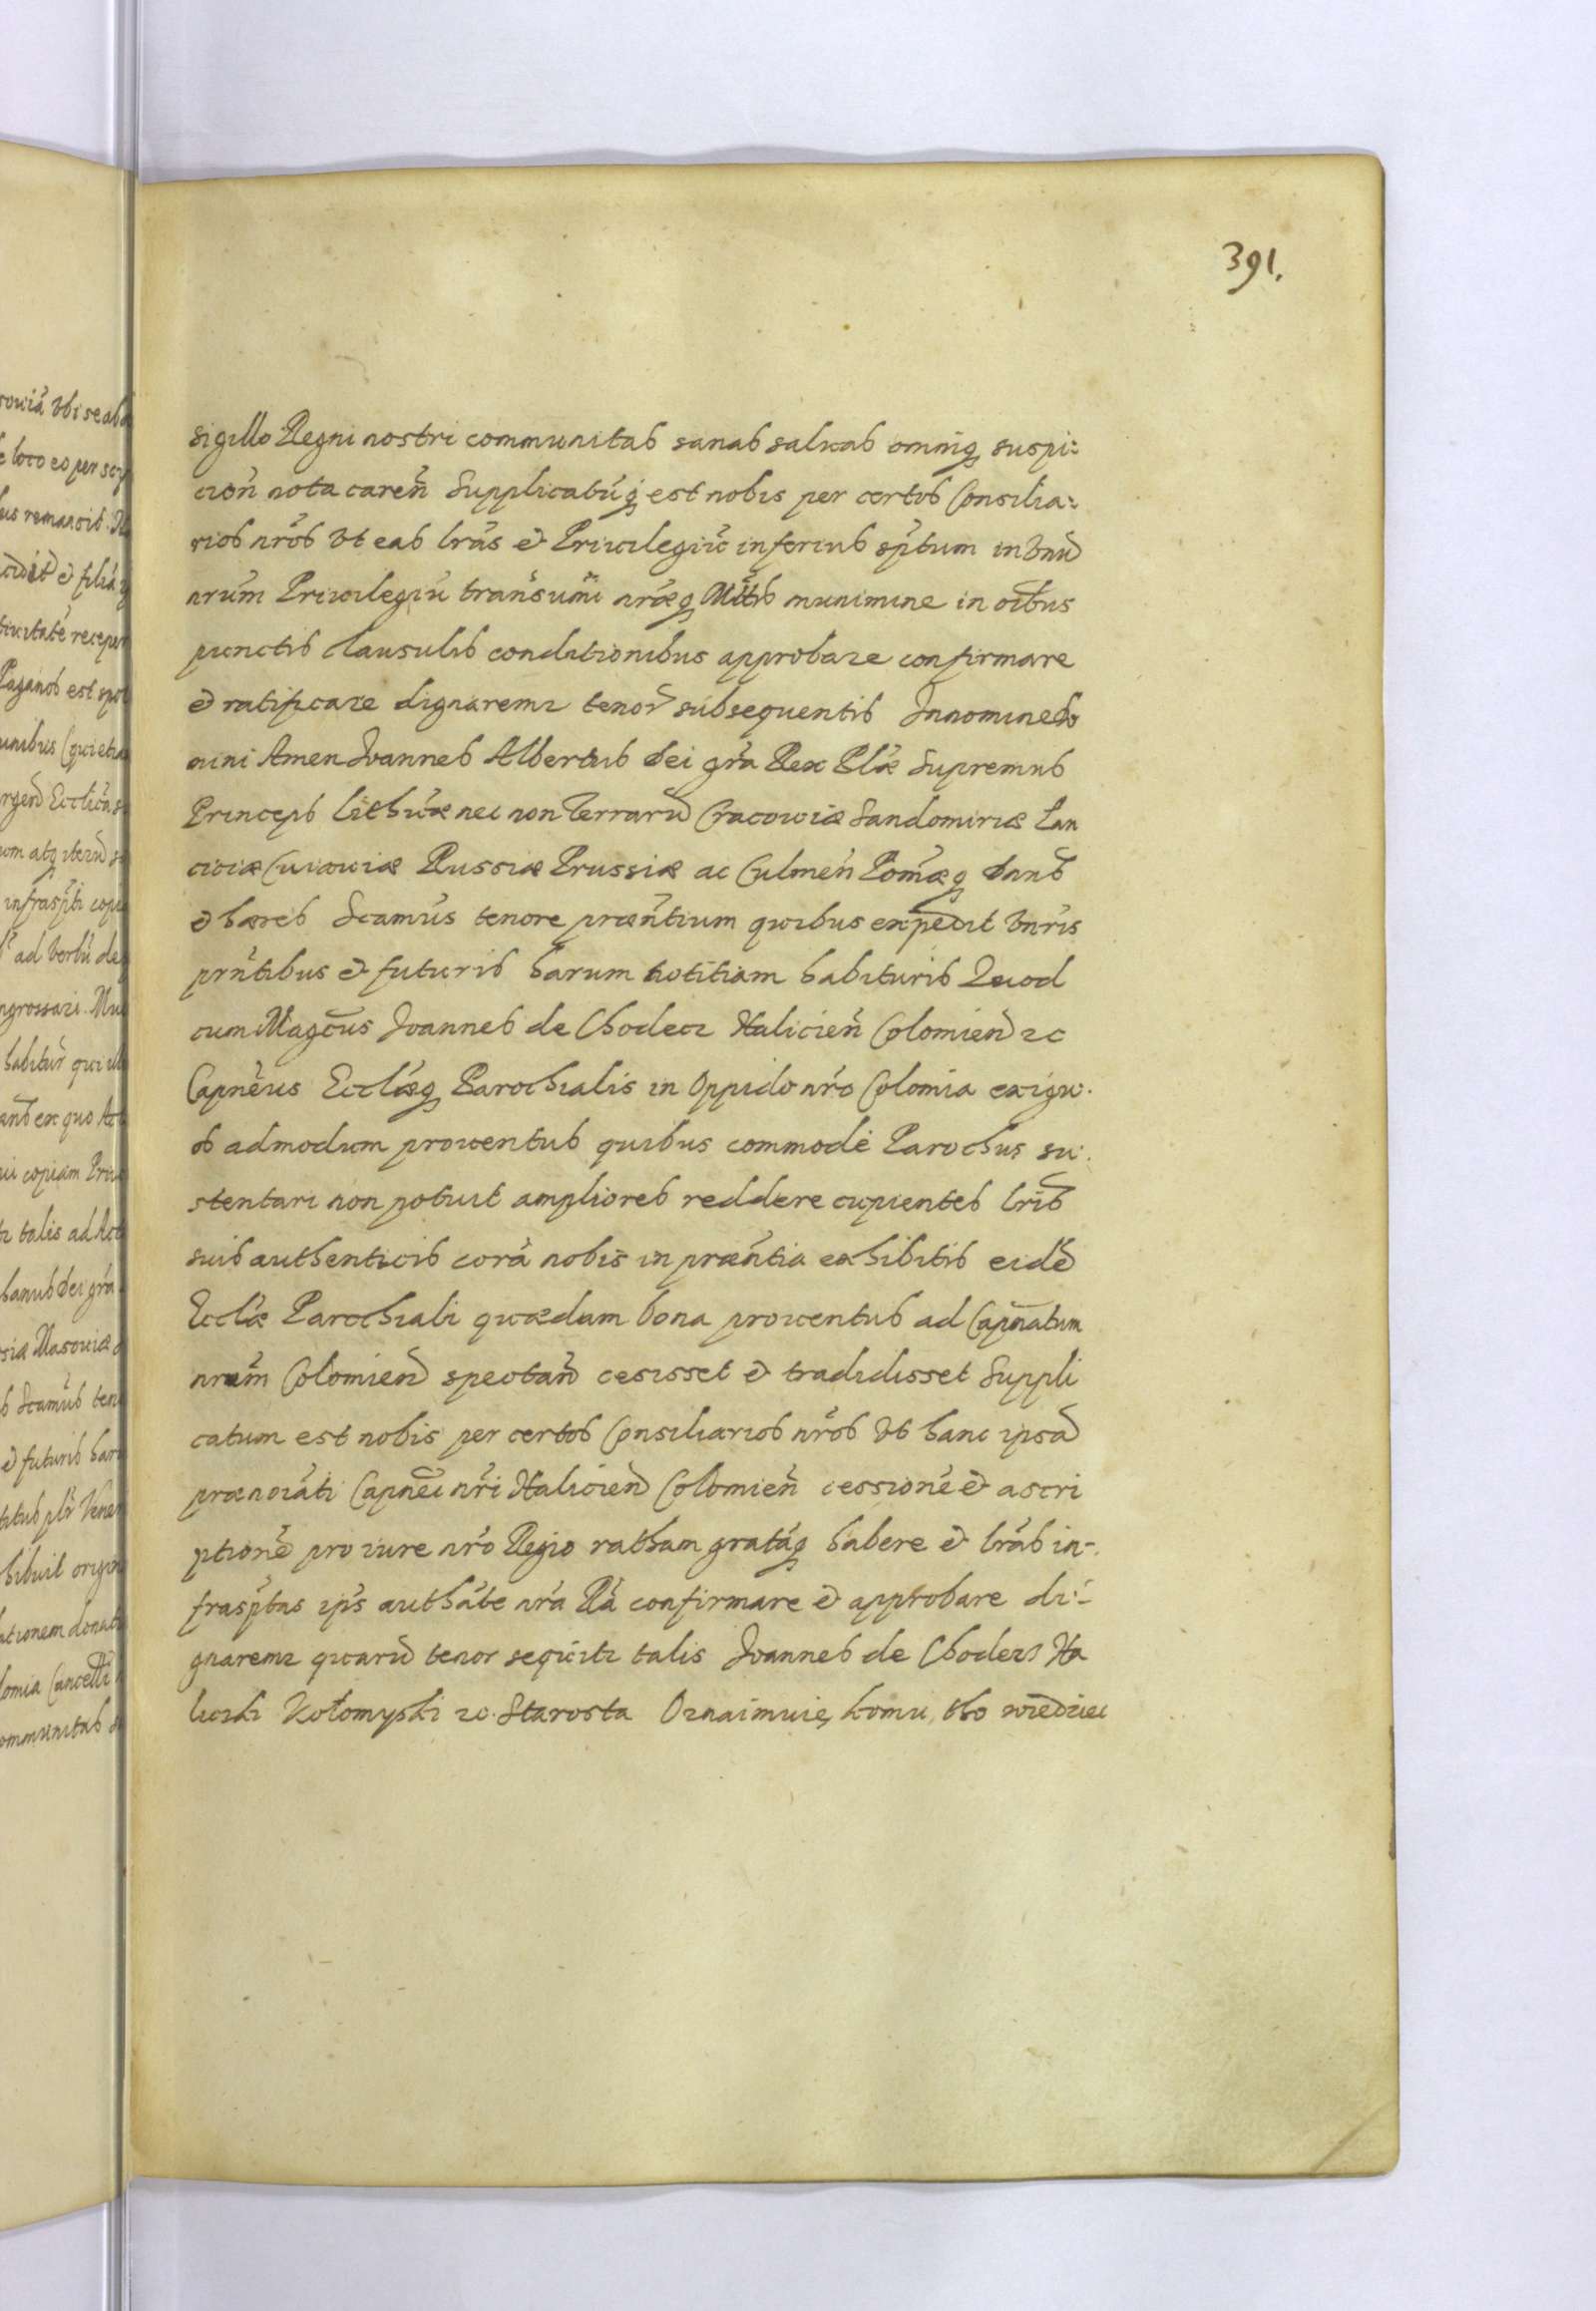 391.
sigillo Regni nostri communitas sanas saluas omniq₃ suspi:
cion̄ nota caren̄ Supplicatū́q₃ est nobis per certos Consilia:
rios nr̄os Vt eas lrās & Priuilegiū inferius sp̄tum in Vnū
nrūm Priuilegiū transumi nrǣq₃ Mttis munimine in oībus
punctis clausulis conditionibus approbare confirmare
& ratificare dignaremr tenor̄ subsequentis Innomine do
mini Amen Joannes Albertus dei grā Rex Plǣ Supremus
Princeps lithūæ nec non Terrarū Cracouiæ Sandomiriæ Lan
ciciæ Cuiauiæ Russiæ Prussiæ ac Culmen̄ Pomǣq₃ dans̄
& hæres Scamūs tenore præn̄tium quibus expedit Vnr̄is
prn̄tibus & futuris harum notitiam habituris Quod
cum Mag̃cus Joannes de Chodecz Halicien̄ Colomien̄ zc
Capnēus Ecclǣq₃ Parochialis in Oppido nr̄o Colomia exigu.
os admodum prouentus quibus commodè Parochus su.
stentari non potuit ampliores reddere cupientes lrīs
suis authenticis corā nobis in præn̄tia exhibitis eidē
Ecclǣ Parochiali quædam bona prouentus ad Capn̄atum
nrūm Colomien̄ spectan̄ cesisset & tradidisset Suppli
catum est nobis per certos Consiliarios nr̄os Vt hanc ipsā
prænoīati Capn̄ei nr̄i Halicien̄ Colomien̄ cessionē & ascri
ptionē pro iure nr̄o Regio ratham gratāq₃ habere & lrās in-
frasp̄tas ip̄s authāte nrā Rā confirmare & approbare di-
gnaremr quarū tenor sequitr talis Joannes de Chodecz Ha
liczki Kołomyski zc. Starosta Oznaimuię komu tho wiedziec